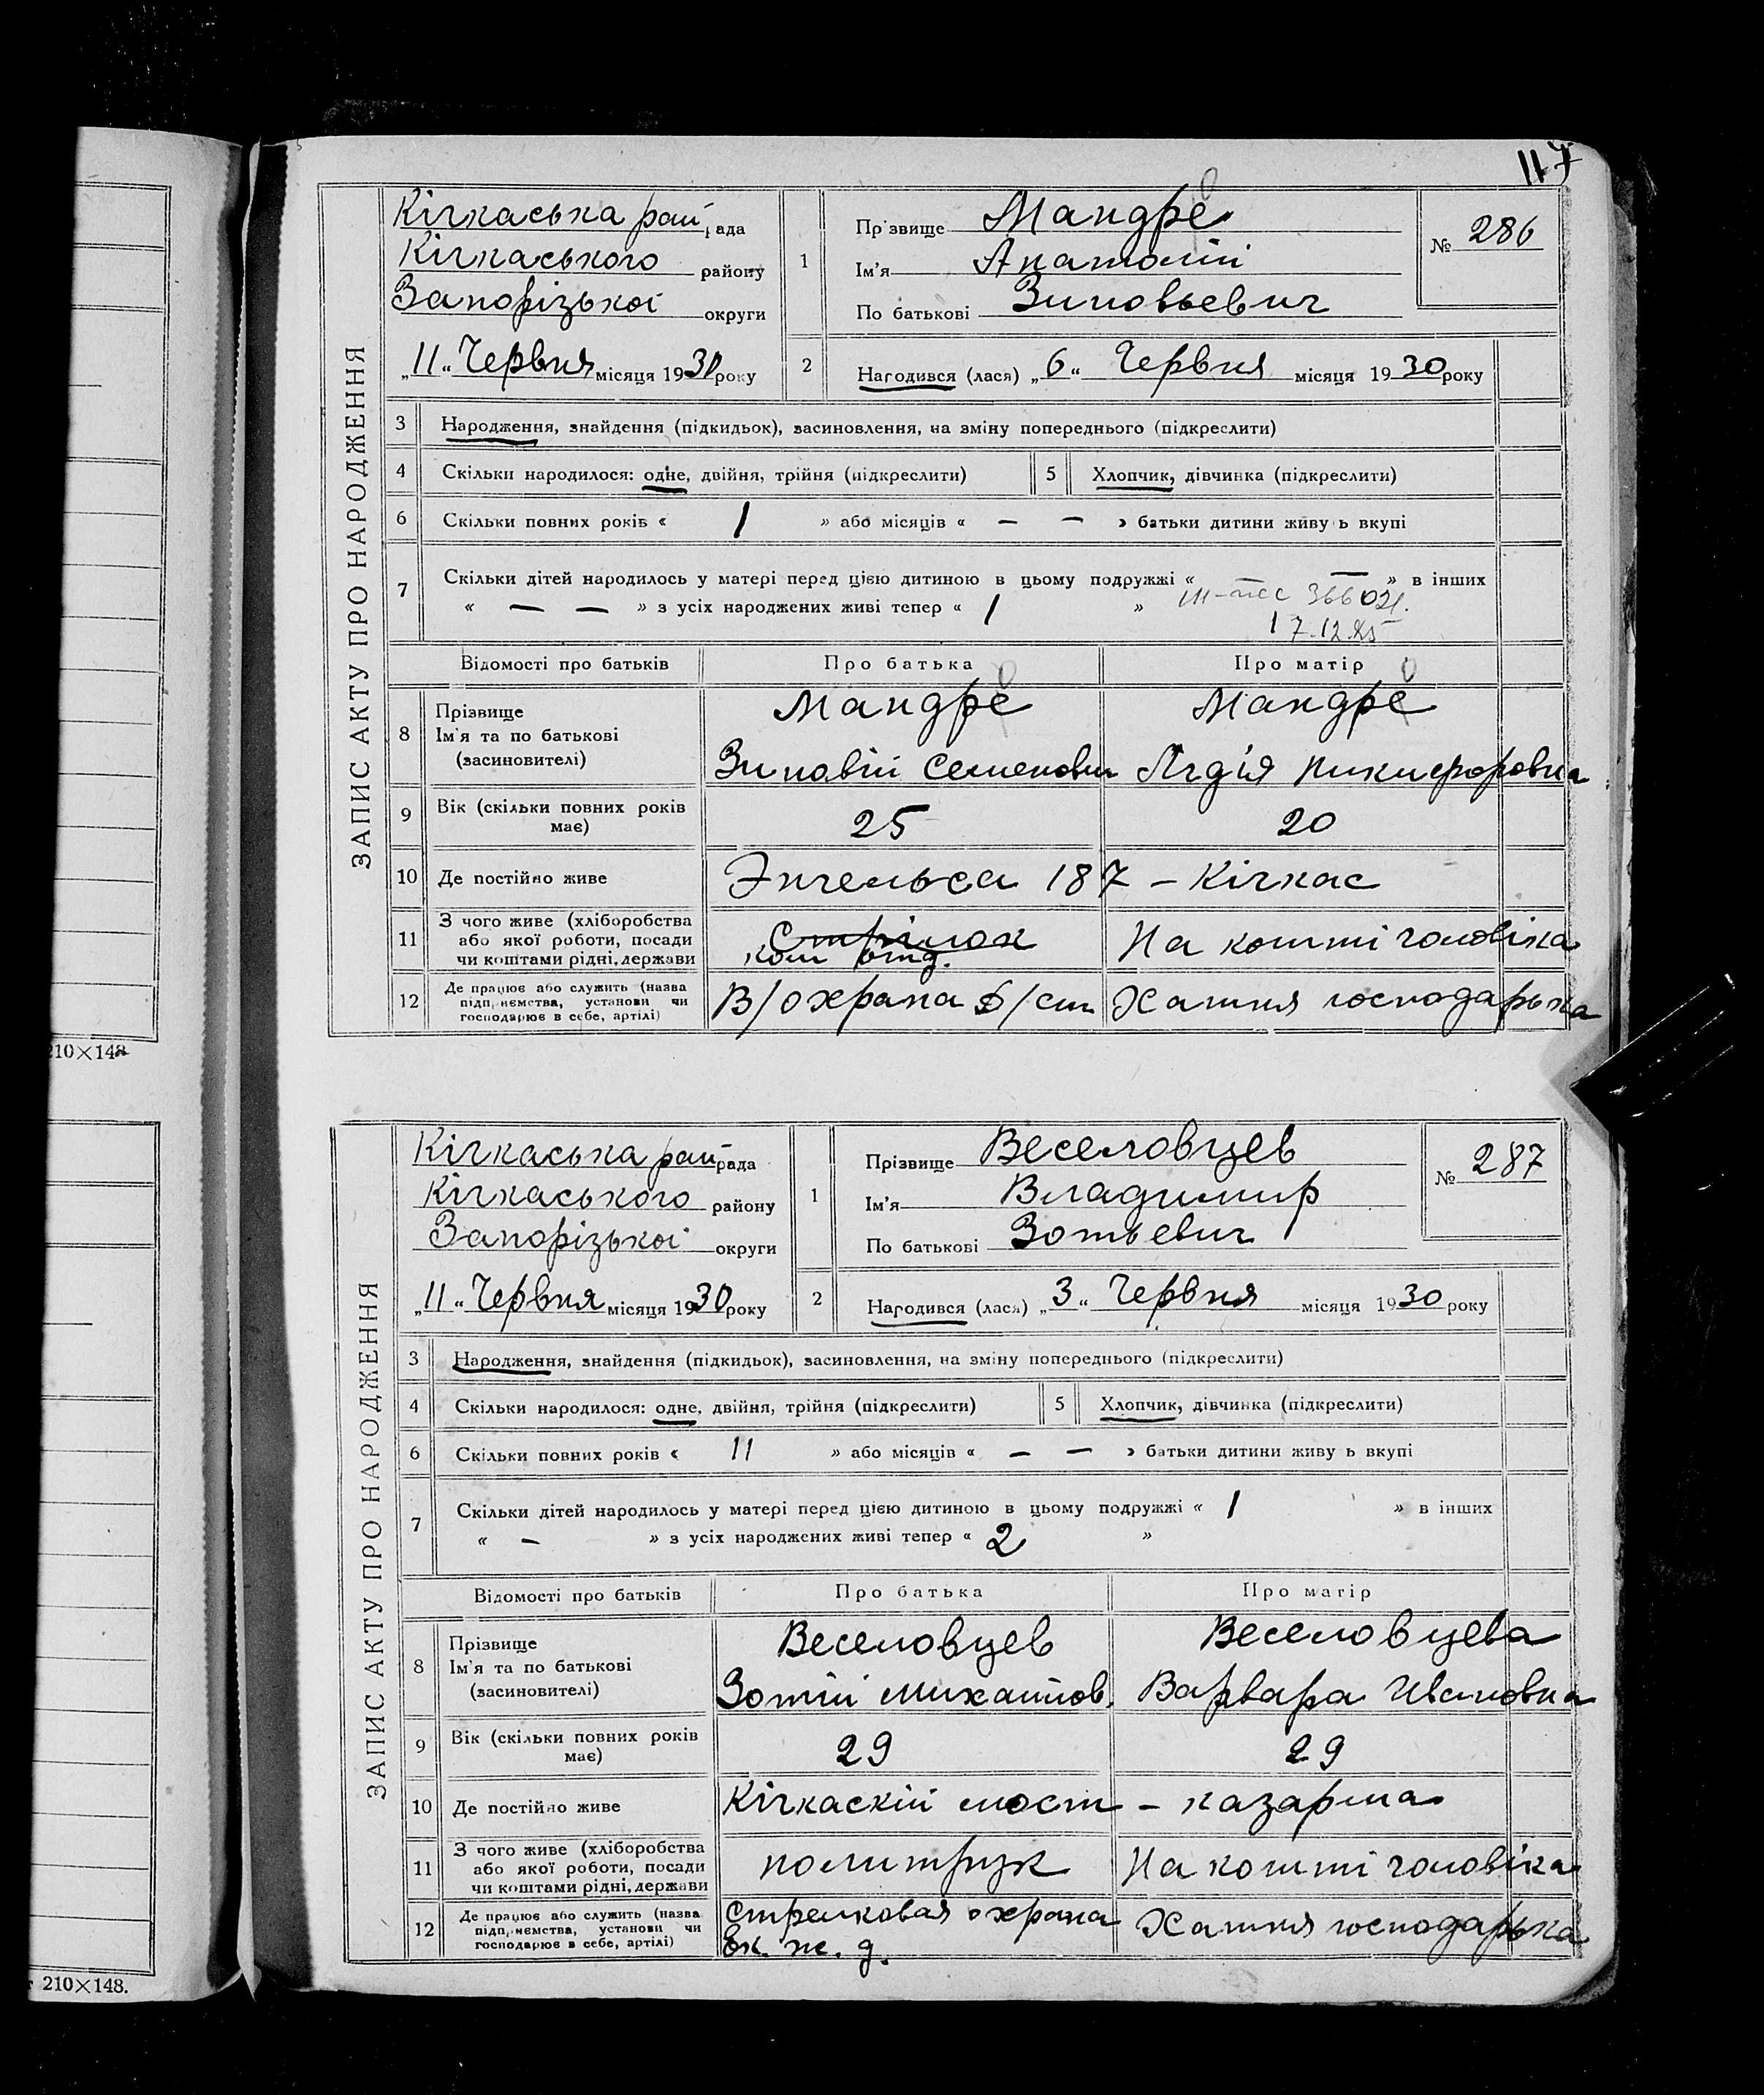 117
ЗАПИС АКТУ ПРО НАРОДЖЕННЯ
Кічкаська рай рада
Кічкаського району
Запорізької округи
„11" Червня місяця 1930 року
1
Прізвище Мандре
Ім'я Анатолій
По батькові Зиновьевич
№ 286
2 Народився (лася) „6" Червня місяця 1930 року
3 Народження, знайдення (підкидьок), засиновлення, на зміну попереднього (підкреслити)
4 Скільки народилося: одне, двійня, трійня (підкреслити) 5 Хлопчик, дівчинка (підкреслити)
6 Скільки повних років « 1 » або місяців « — — » батьки дитини живуть вкупі
7 Скільки дітей народилось у матері перед цією дитиною в цьому подружжі « — — » в інших
« — — » з усіх народжених живі тепер « 1 »
366021.
17.12.85
Відомості про батьків Про батька Про матір
8 Прізвище Ім'я та по батькові (засиновителі)
Мандре Мандре
Зиновій Семенович Лідія Никифоровна
9 Вік (скільки повних років має) 25 20
10 Де постійно живе Энгельса 187 – Кічкас
11 З чого живе (хліборобства або якої роботи, посади чи коштами рідні, держави
Стрілок
ком отд.
На кошті чоловіка
12 Де працює або служить (назва підприємства, установи чи господарює в себе, артілі)
В/охрана /ст Хатня господарька
210×148
ЗАПИС АКТУ ПРО НАРОДЖЕННЯ
Кічкаська рай рада
Кічкаського району
Запорізької округи
„11" Червня місяця 1930 року
1
Прізвище Веселовцев
Ім'я Владимир
По батькові Зотьевич
№ 287
2 Народився (лася) „3" Червня місяця 1930 року
3 Народження, знайдення (підкидьок), засиновлення, на зміну попереднього (підкреслити)
4 Скільки народилося: одне, двійня, трійня (підкреслити) 5 Хлопчик, дівчинка (підкреслити)
6 Скільки повних років « 11 » або місяців « — — » батьки дитини живуть вкупі
7 Скільки дітей народилось у матері перед цією дитиною в цьому подружжі « 1 » в інших
« – » з усіх народжених живі тепер « 2 »
Відомості про батьків Про батька Про матір
8 Прізвище Ім'я та по батькові (засиновителі)
Веселовцев Веселовцева
Зотій Михайлов. Варвара Ивановна
9 Вік (скільки повних років має) 29 29
10 Де постійно живе Кічкаскій мост – казарма
11 З чого живе (хліборобства або якої роботи, посади чи коштами рідні, держави
политрук На кошті чоловіка
12 Де працює або служить (назва підприємства, установи чи господарює в себе, артілі)
Стрелковая охрана
Ек. ж. д.
Хатня господарька
210×148.